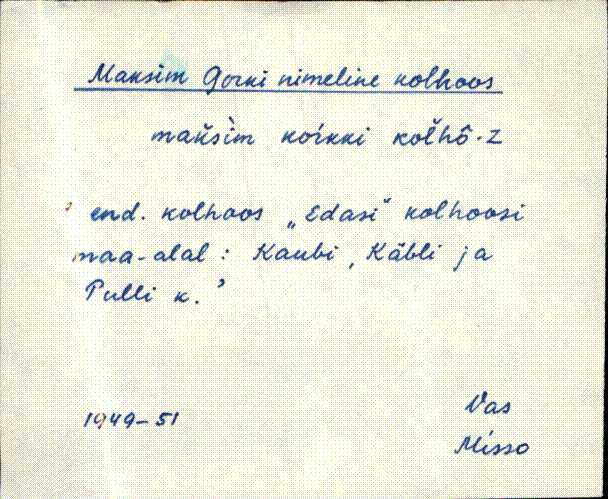 Maksim Gorki nimeline kolhoos
mak̆sìm kor̆kki kol̆hô-z
' end. kolhoos „Edasi" kolhoosi
maa-alal : Kaubi, Käbli ja
Pulli k. '
1949-51
Vas
Misso